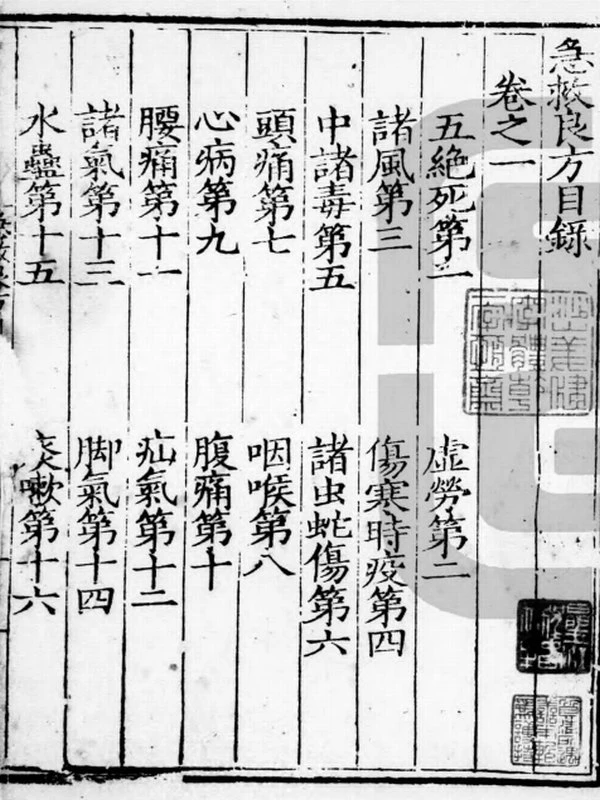 急救良方目錄
卷之一
五絕死第一 虛勞第二
諸風第三 傷寒時疫第四
中諸毒第五 諸虫蛇傷第六
頭痛第七 咽喉第八
心病第九 腹痛第十
腰痛第十一 疝氣第十二
諸氣第十三 脚氣第十四
水蠱第十五 嗽第十六